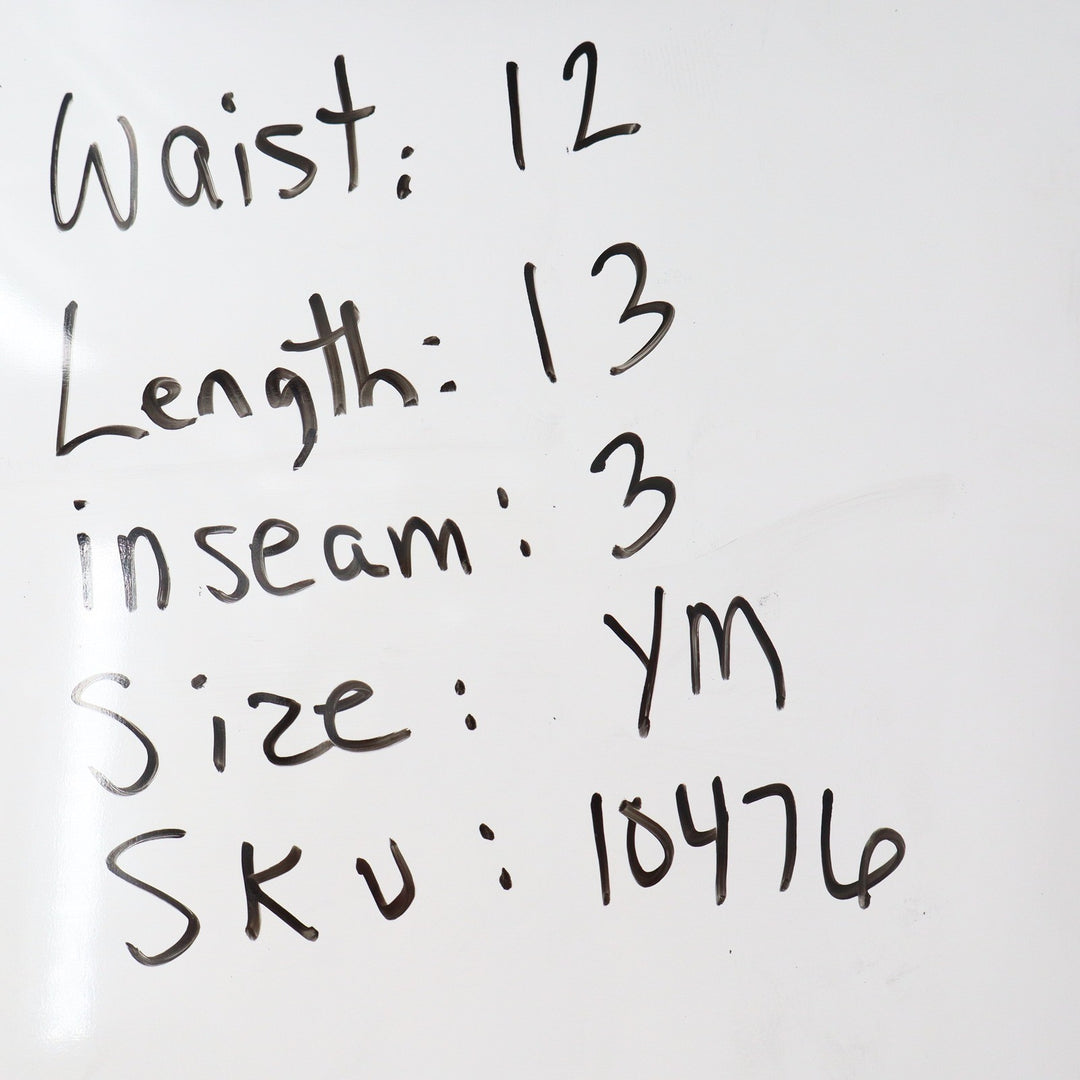 Waist: 12
Length: 13
inseam: 3
Size: YM
SKU: 10476